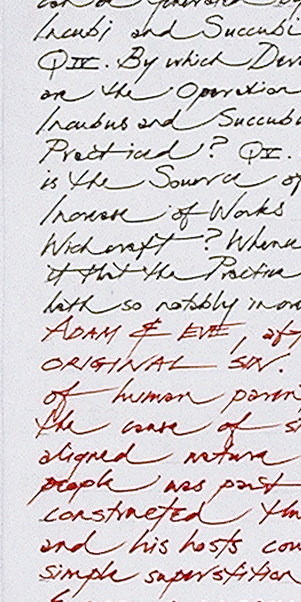 can be generated by
Incubi and Succubi
QIV. By which Dev
are the Operation
Incubus and Succubu
Practiced? QV.
is the Source of
Increase of Works
Witchcraft? Whence
it that the Practice
hath so notably incre
ADAM & EVE, aft
ORIGINAL SIN.
of human paren
the cause of si
aligned nature
people was past
constructed the
and his hosts cou
simple superstition